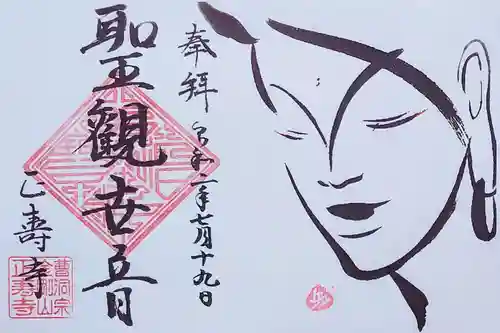 奉拝
令和二年七月十九日
聖観世音
正壽寺
曹洞宗
正壽寺